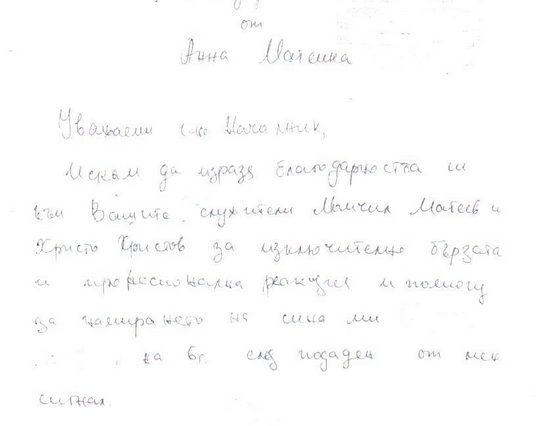 от
Анна Матеина
Уважаеми г-не Началник,
Искам да изразя благодарността си
към Вашите служители Момчил Матеев и
Христо Христов за изключително бързата
и професионална реакция и помощ
за намирането на сина ми
на 6г. след подаден от мен
сигнал.